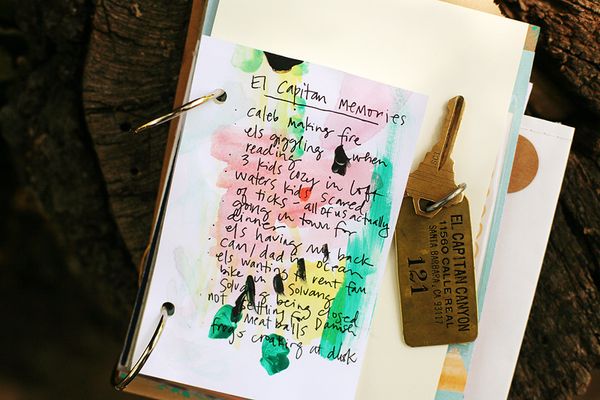 El Capitan Memories
caleb making fire
els giggling when
reading
3 kids cozy in loft
waters kids scared
of ticks - all of us actually
going in town for
dinner
els having my back
can/dad ocean
els wanting to rent fam
bike in Solvang
Solvang being closed
not settling for Danish
meatballs
frogs croaking at dusk
EL CAPITAN CANYON
11560 CALLE REAL
SANTA BARBARA, CA 93117
121